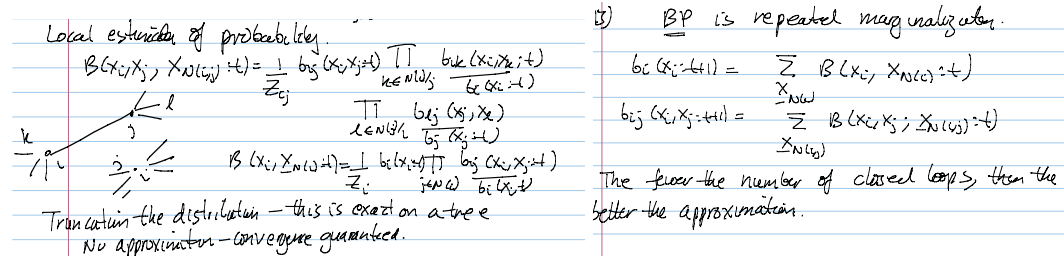 Local estimation of probability.
B(x_i, x_j, x_{N(i,j)} : t) = \frac{1}{Z_{ij}} b_{ij}(x_i, x_j : t) \prod_{k∈N(i)/j} \frac{b_{ik}(x_i, x_k ; t)}{b_i(x_i : t)}
\prod_{l∈N(j)/i} \frac{b_{lj}(x_j, x_l)}{b_j(x_j : t)}
k i j l
B(x_i, x_{N(i)} : t) = \frac{1}{Z_i} b_i(x_i : t) \prod_{j∈N(i)} \frac{b_{ij}(x_i, x_j : t)}{b_i(x_i, t)}
j i
Truncation the distribution – this is exact on a tree
No approximation – convergence guaranteed.
3) BP is repeated marginalization.
b_i(x_i : t+1) = \sum_{x_{N(i)}} B(x_i, x_{N(i)} : t)
b_{ij}(x_i, x_j : t+1) = \sum_{x_{N(i,j)}} B(x_i, x_j ; x_{N(i,j)} : t)
The fewer the number of closed loops, then the
better the approximation.